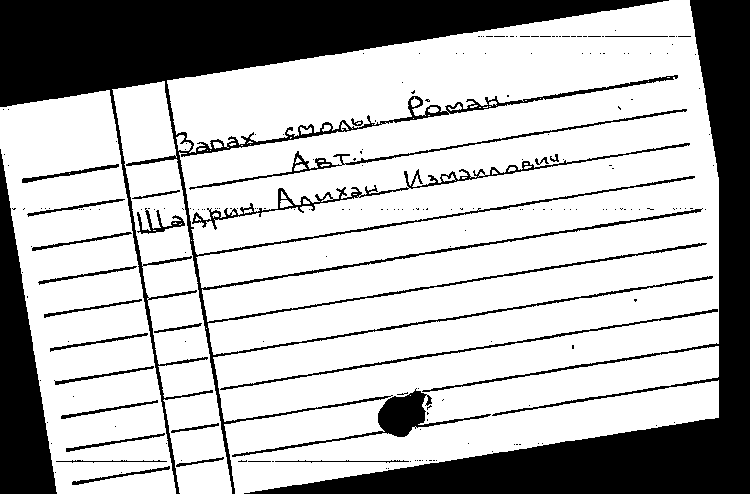 Запах смолы Роман.
Авт.:
Шадрин, Адихан Измаилович.